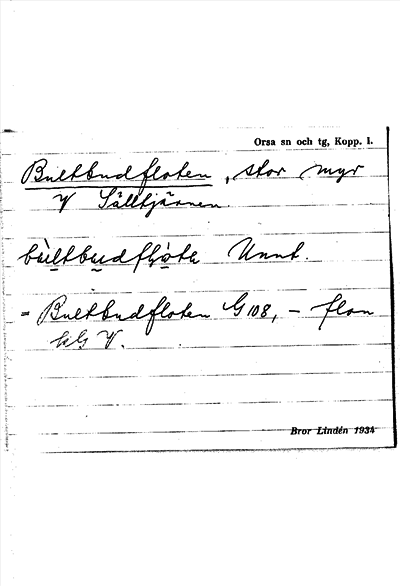 Orsa sn och tg, Kopp. l.
Bultbudfloten, stor myr
V Sälltjärnen.
bu̠ltbu̠dflo̠te Unnt.
= Bultbudfloten G 108, – flon
kG V.
Bror Lindén 1934